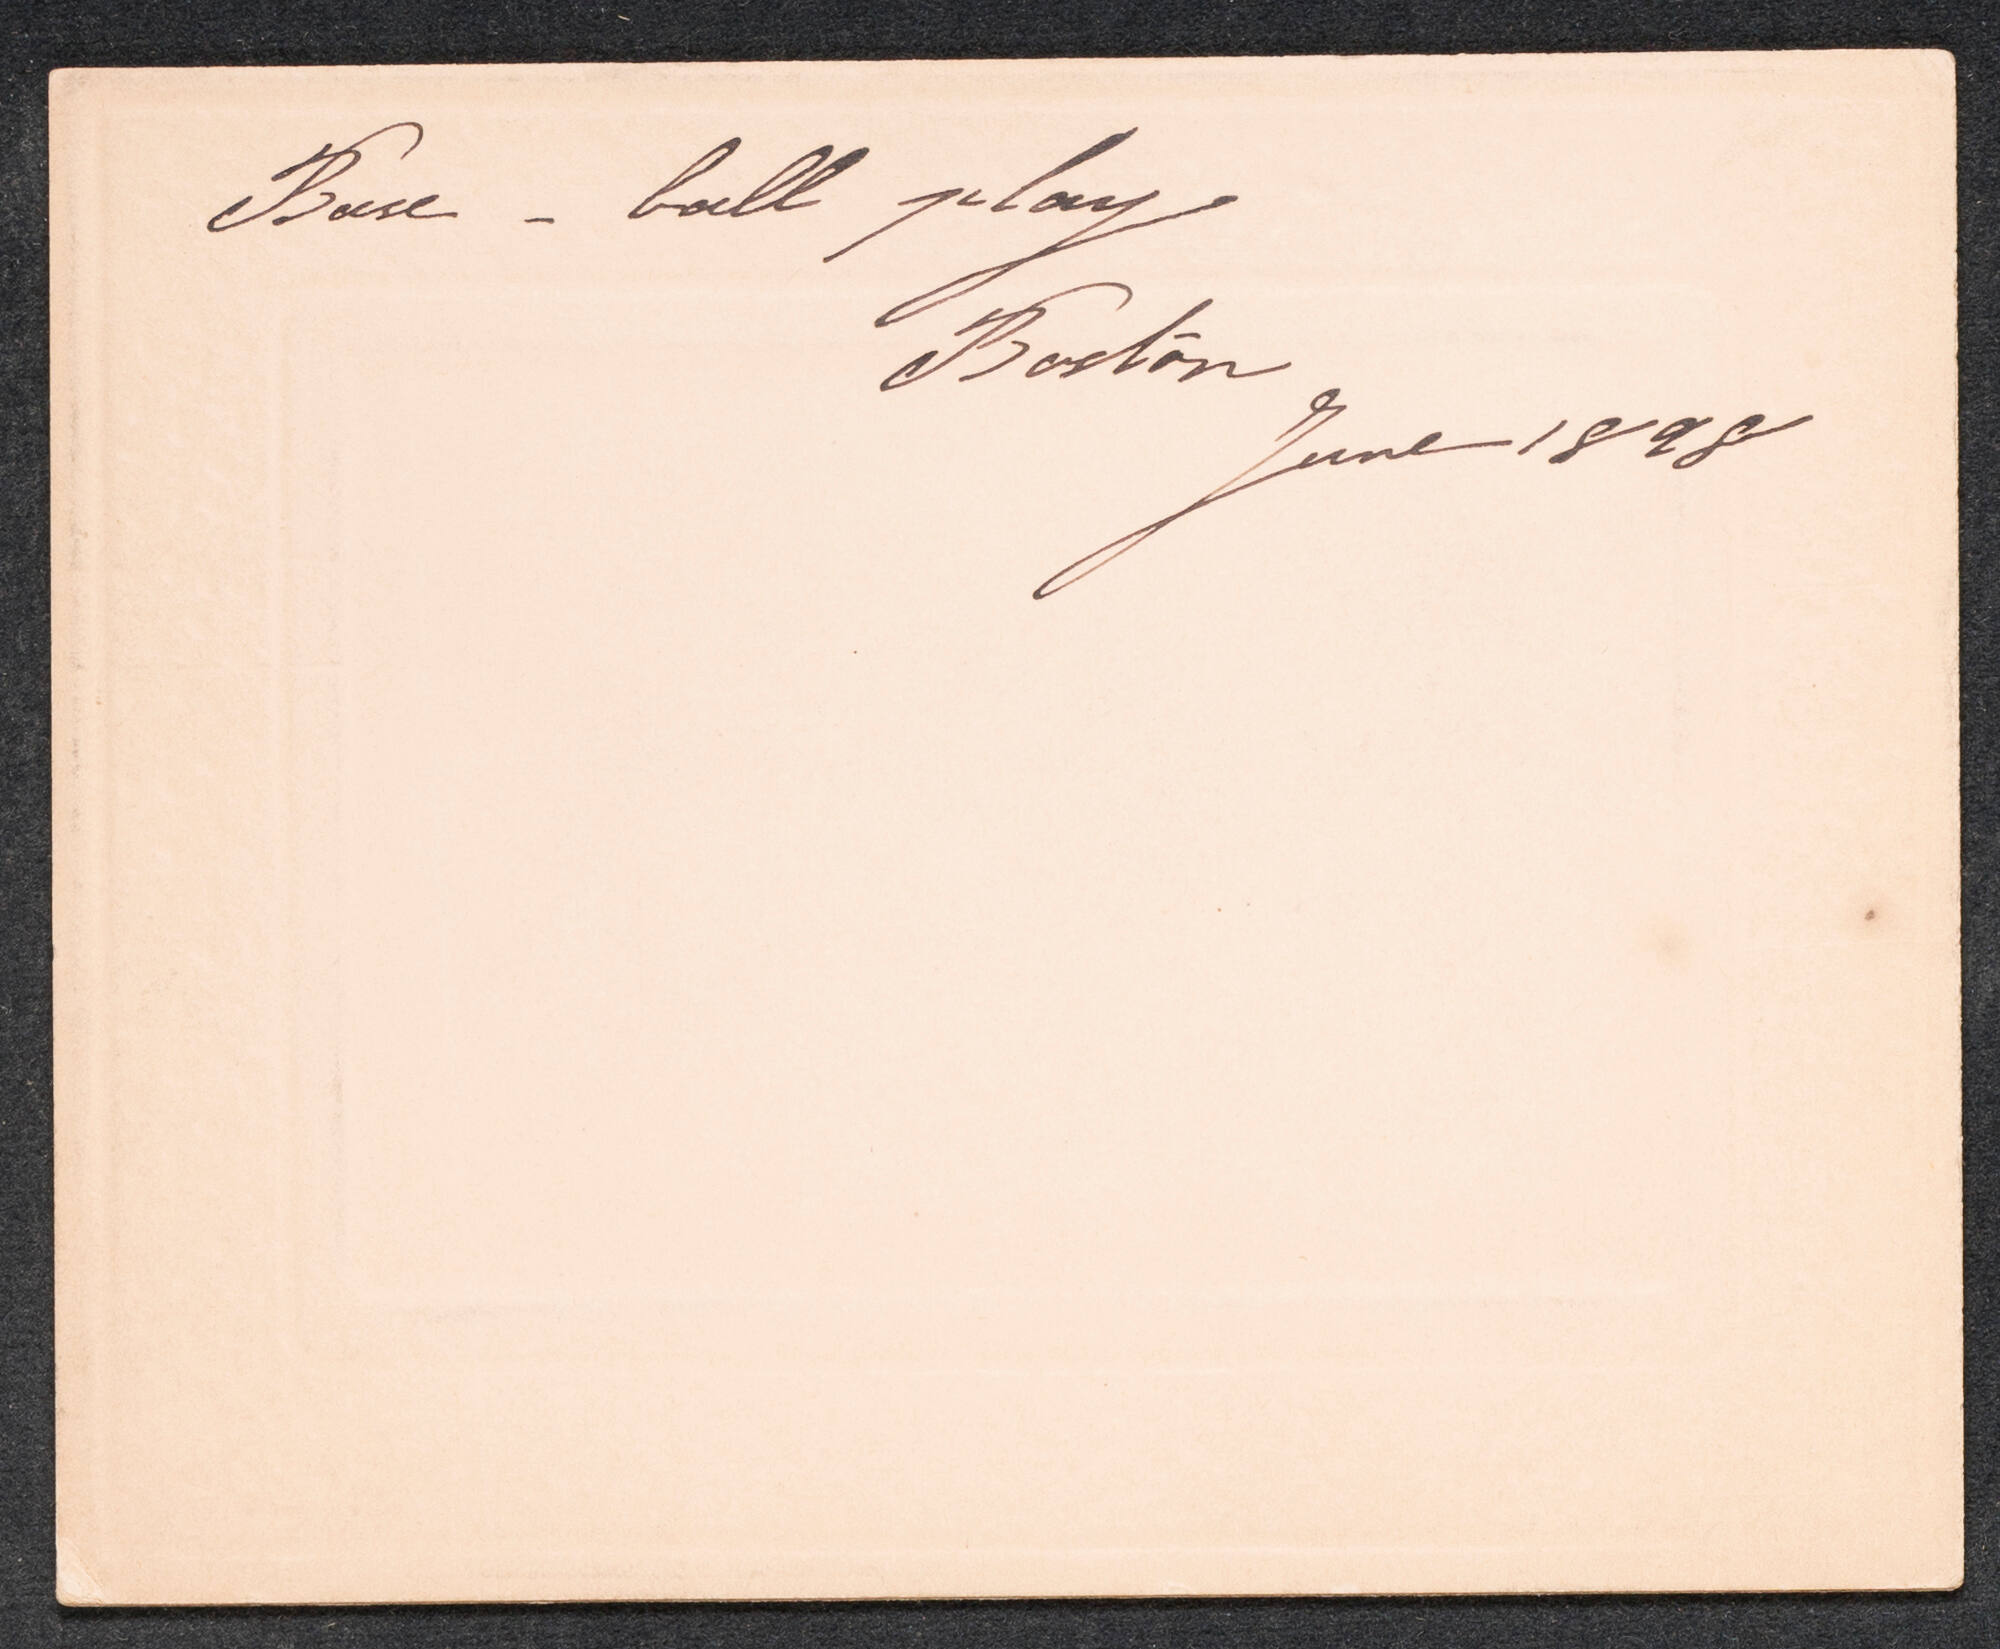 Base - ball play
Boston
June 1898